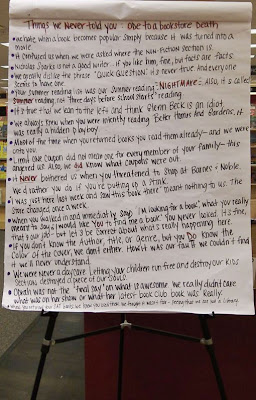 Things we Never told you: Ode to a bookstore death
• We hate when a book becomes popular simply because it was turned into a
movie.
• It confused us when we were asked where the non fiction section is.
• Nicholas Sparks is not a good writer.. if you like him, fine, but facts are facts.
• We greatly dislike the phrase "Quick Question." It's never true. And everyone
seems to have one.
• Your summer reading list was our summer reading NIGHTMARE. Also, it is called
summer reading, not three days before school starts reading.
• It's true that we lean to the left and think Glenn Beck is an idiot.
• We always knew when you were intently reading Better Homes and Gardens, it
was really a hidden Playboy.
• Most of the time when you returned books you read them already – and we were
onto you.
• Limit one coupon did not mean one for every member of your family – this
angered us. Also, we did know what coupons were out.
• It never bothered us when you threatened to shop at Barnes & Noble.
We'd rather you do if you're putting up a stink.
• "I was just here last week and saw this book there" meant nothing to us. The
store changed once a week.
• When you walked in and immediately said, "I'm looking for a book," what you really
meant to say is, "I would like you to find me a book." You never looked. It's fine,
that's our job – but let's be correct about what's really happening here.
• If you don't know the Author, title, or genre, but you do know the
color of the cover, we don't either. How it was our fault we couldn't find
it we'll never understand.
• We were never a daycare. Letting your children run free and destroy our kids
section destroyed a piece of our souls.
• Oprah was not the "final say" on what is awesome. We really didn't care
what was on her show or what her latest book club book was. Really.